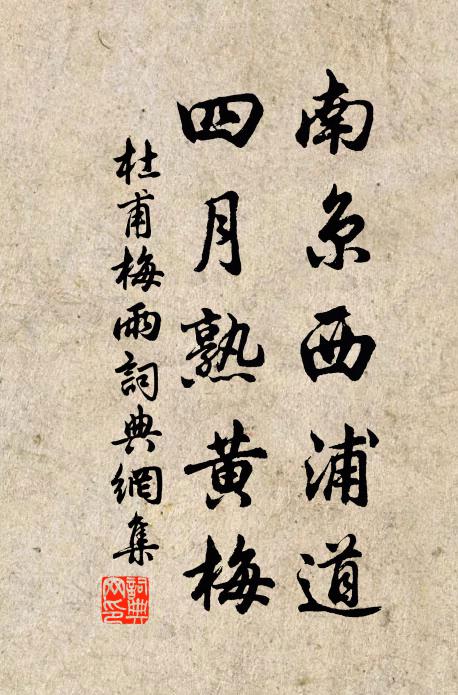 南京西浦道
四月熟黄梅
杜甫梅雨詞典網集
詞典網印